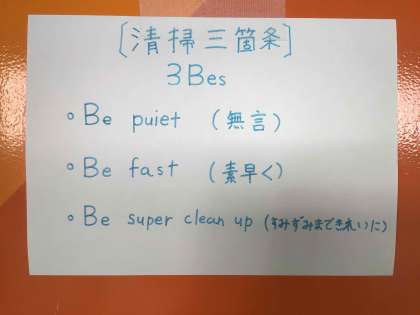 [清掃三箇条]
3Bes
。Be puiet (無言)
。Be fast (素早く)
。Be super clean up (すみずみまできれいに)